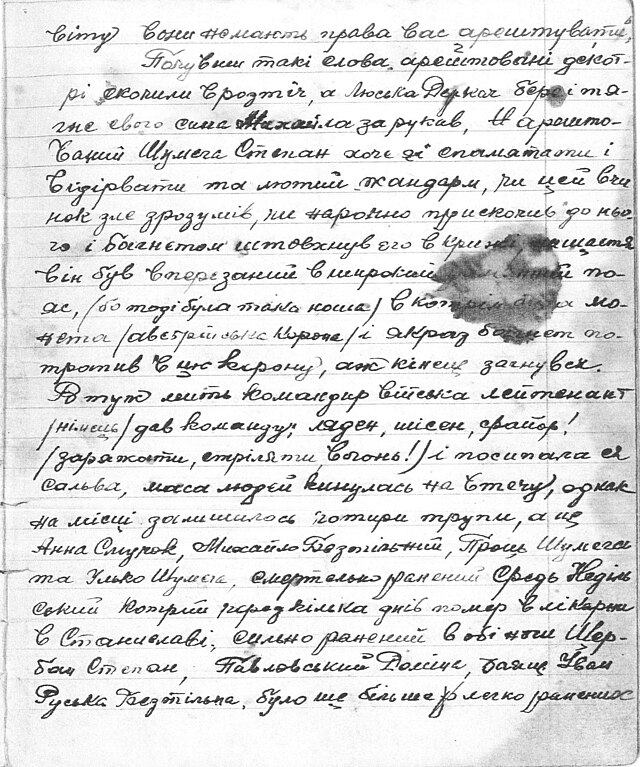 віту) вони не мають права вас арештувати,
Почувши такі слова арештовані декот-
рі скочили врозтіч, а Люська Деркач бере і тя-
гне свого сина Михайла за рукав, Н арешто-
ваний Шумега Степан хоче її спаматати і
відірвати та лютий жандарм, чи цей вчи
нок зле зрозумів, чи нарошно прискочив до ньо-
го і багнетом штовхнув его в крижі
він був вперезаний в широкий по-
ас, /бо тоді була така ноша/ в котрім мо-
нета /австрійська корона/ і якраз багнет по-
трапив в цю корону, аж кінець загнувся.
В ту ж мить командир війська лейтенант
/німець/ дав команду; ляден, шісен, файор!
/заряжати, стріляти вогонь!/ і посипалася
сальва, маса людей кинулась на втечу, однак
на місці залишилось чотири трупи, а це
Анна Смучок, Михайло Безтільний, Проць Шумега
та Улько Шумега, смертельно ранений Федь Неділь
ський котрий через кілька днів помер в лікарни
в Станиславі, сильно ранений в обі ноги Щер-
бан Степан, Павловський Іван
Руська Безтільна, було ще більше легко ранених